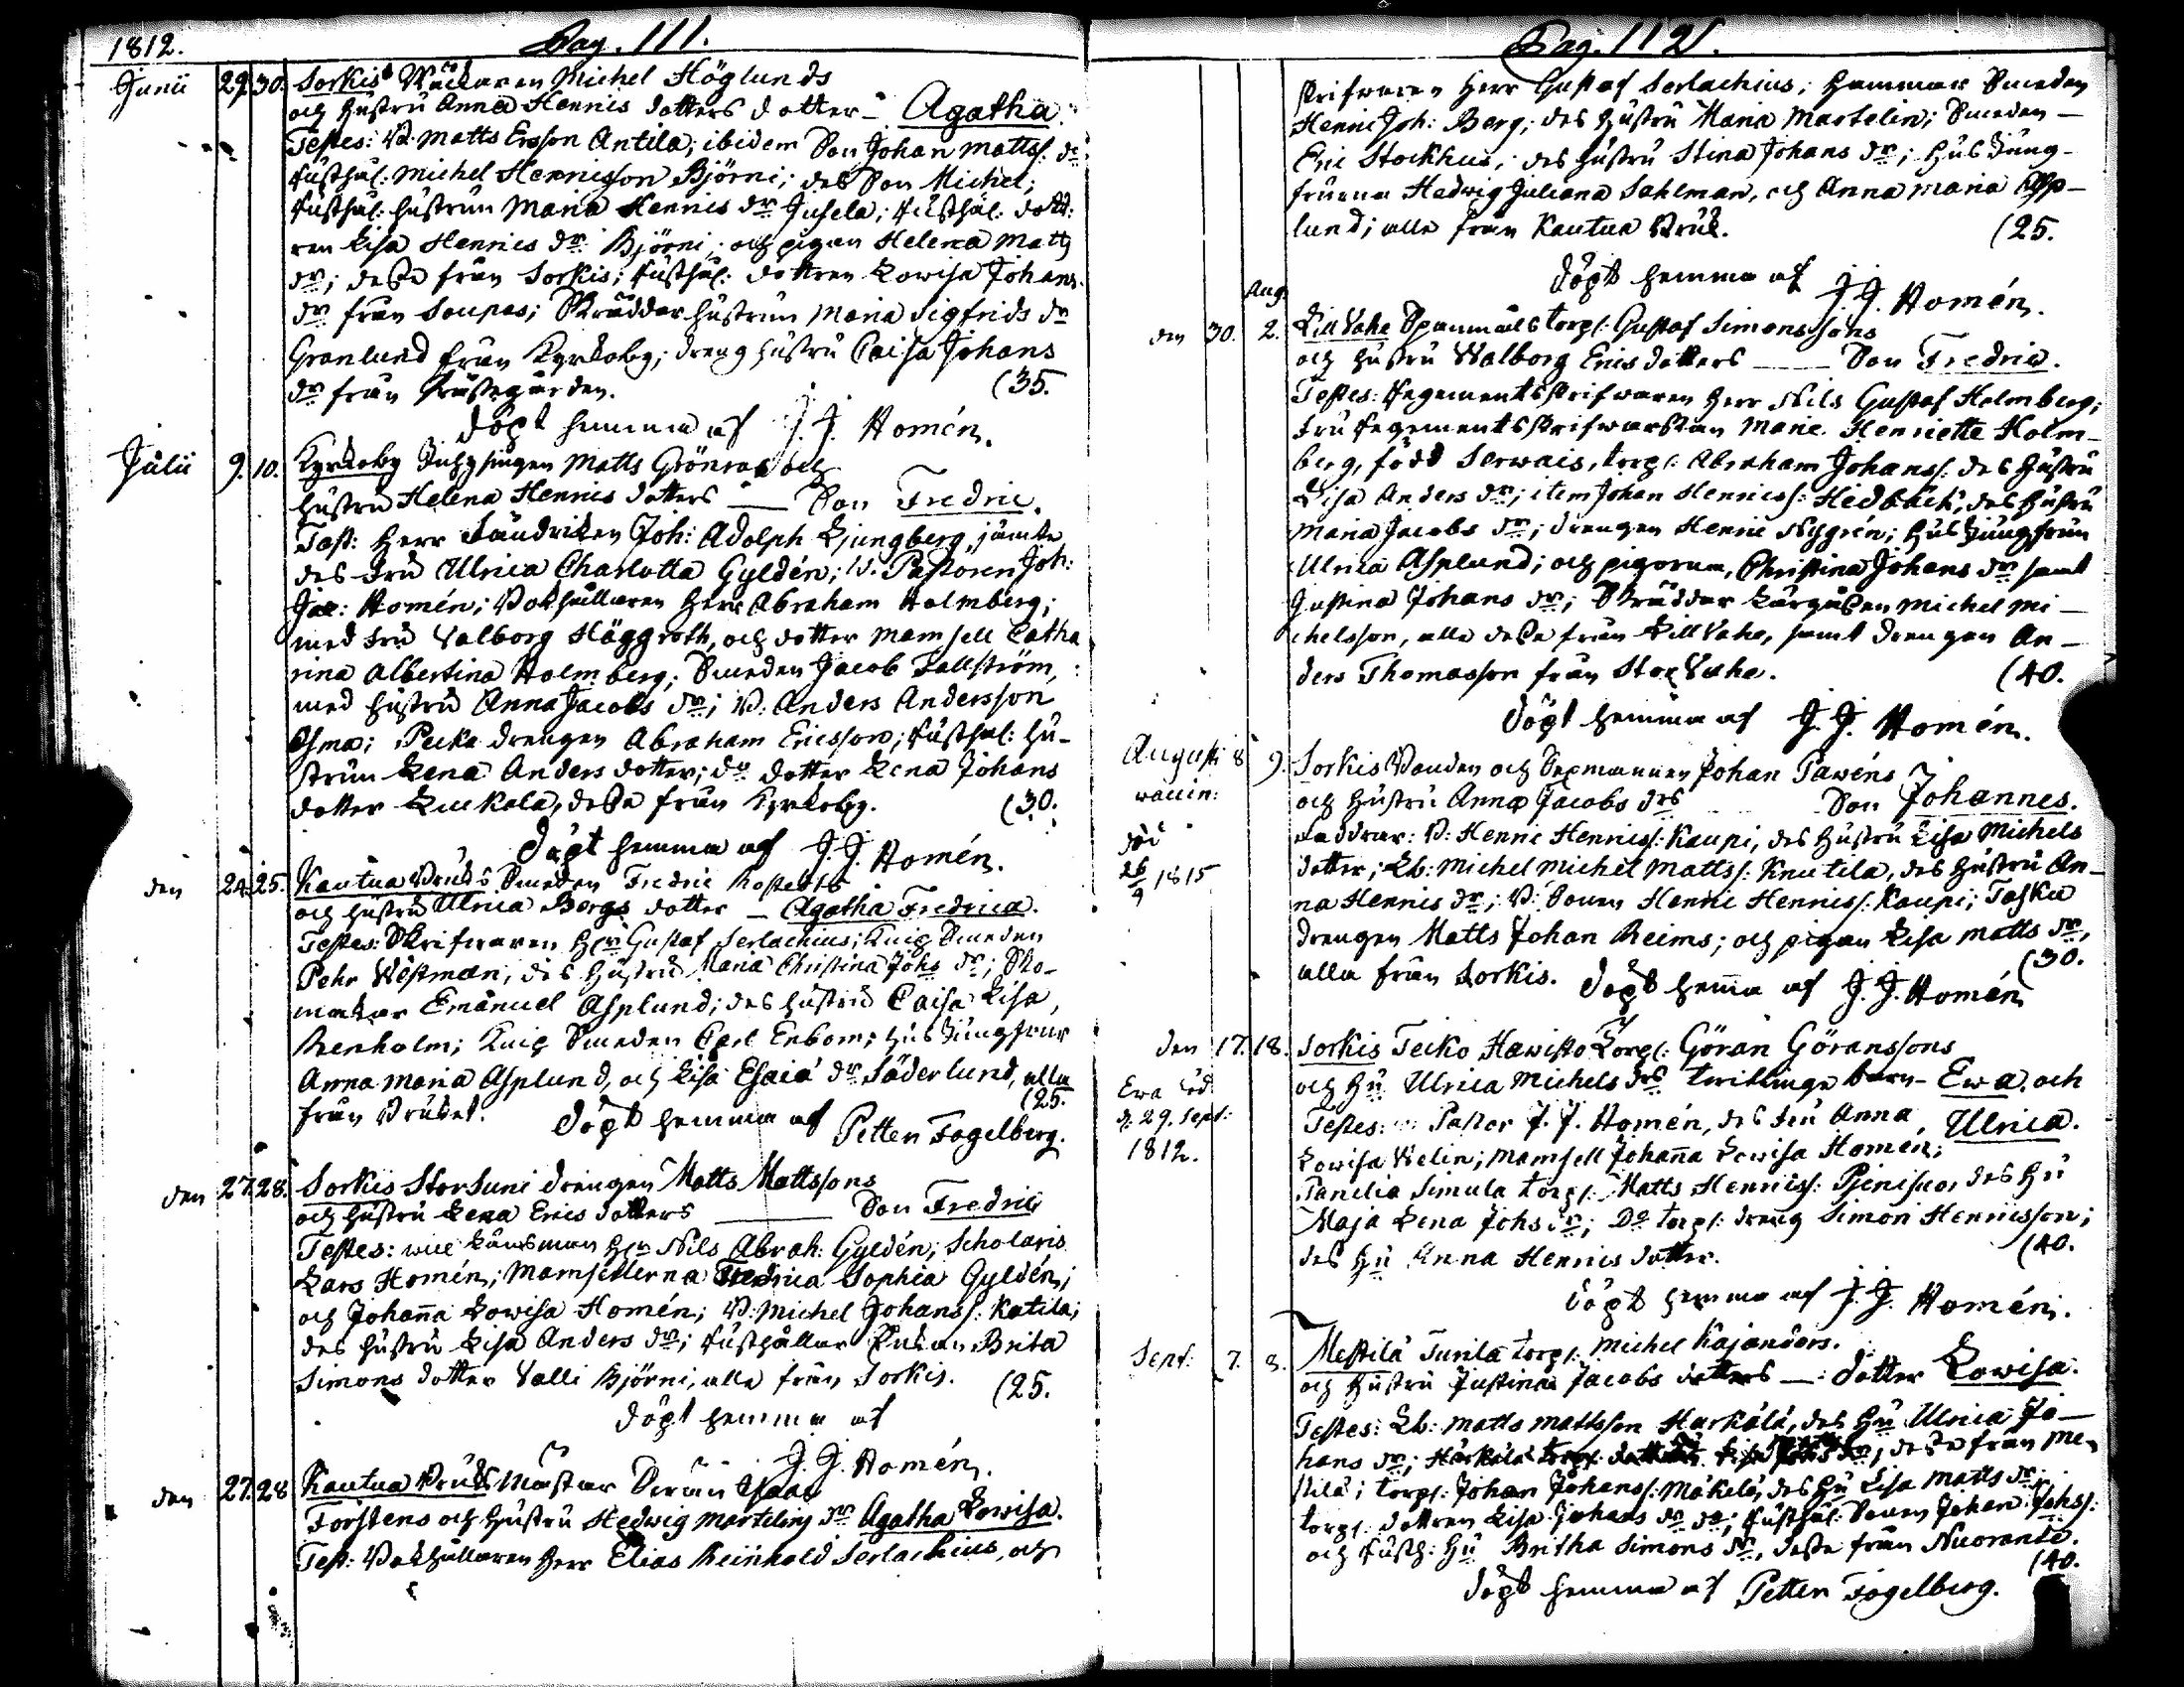 1812.
Pag. 111.
Junii 29. 30. Sorkis Wäckaren Michel Höglunds
och Hustru Anna Henrics dotters dotter – Agatha.
Testes: Matts Ersson Antila; ibidem Son Johan Mattss: dr
Rusthål: Michel Henricsson Björni; des Son Michel;
Rusthål: hustrun Maria Henrics dr Jusela; Rusthål: dott:
ren Lisa Henrics dr Björni; och pigan Helena Matts
dr; desse från Sorkis; Rusthål: dottren Lowisa Johans
dr från Soupas; Skräddar hustrun Maria Sigfrids dr
Granlund från Kyrkoby; dreng hustru Caisa Johans
dr från Prästegården. (35.
döpt hemma af J. J. Homén.
Julii 9. 10. Kyrkoby Matts Grönros och
hustru Helena Henrics dotters — Son Fredric.
Test: Herr Joh: Adolph Ljungberg, jämte
des Fru Ulrica Charlotta Gyldén; V. Pastoren Joh:
Jac: Homén; Bokhållaren Herr Abraham Holmberg;
med Fru Valborg Häggroth, och dotter Mamsell Catha
rina Albertina Holmberg; Smeden Jacob Fallström,
med hustru Anna Jacobs dr; B: Anders Andersson
Osma; Pecka drengen Abraham Ericsson; Rusthål: hu-
strun Lena Anders dotter; do dotter Lena Johans
dotter Luckala, desse från Kyrkoby. (30.
döpt hemma af J. J. Homén.
den 24. 25. Kautua Bruks Smeden Fredric Rostedts
och hustru Ulrica Bergs dotter – Agatha Fredrica.
Testes: Skrifwaren Hr Gustaf Serlachius; Knip Smeden
Pehr Westman, des Hustru Maria Christina Johs dr; Sko-
makar Emanuel Asplund; des hustru Caisa Lisa
Renholm; Knip Smeden Carl Enbom; hus Jungfrur
Anna Maria Asplund, och Lisa Esaiæ dr Söderlund, alla
från Bruket. (25.
döpt hemma af Petter Fogelberg.
den 27. 28. Sorkis StorSuni drengen Matts Mattssons
och hustru Lena Erics dotters — Son Fredric
Testes: vice Länsman Hr Nils Abrah: Gyldén; Scholaris
Lars Homén; Mamsellerna Fredrica Sophia Gyldén;
och Johan̄a Lowisa Homén; B: Michel Johanss: Katila;
des hustru Lisa Anders dr; Rusthållar Enkan Brita
Simons dotter Valli Björni, alla från Sorkis. (25.
döpt hemma af
J. J. Homén.
den 27. 28 Kautua Bruks Mästar Isaac
Forstens och Hustru Hedwig Martelins dr Agatha Lowisa.
Test: Bokhållaren Herr Elias Reinhold Serlachius, och
Pag. 112.
skrifvaren Herr Gustaf Serlachius; Hammar Smeden
Henric Joh: Berg; des hustru Maria Martelin; Smeden –
Eric Stockhus; des hustru Stina Johans dr; hus Jung-
fruerna Hedwig Juliana Sahlman, och Anna Maria Asp-
lund; alla från Kautua Bruk. (25.
döpt hemma af J. J. Homén.
Aug.
den 30. 2. LillVahe Spanmåls torp: Gustaf Simonssons
och hustru Walborg Erics dotters — Son Fredric.
Testes: Regementsskrifwaren Herr Nils Gustaf Holmberg;
Fru Regementsskrifwarskan Marie Henriette Holm-
berg, född Serwais, torp: Abraham Johanss: des Hustru
Lisa Anders dr; item Johan Henricss: Hedbäck, des hustru
Maria Jacobs dr; drengen Henric Nygrén; hus Jungfrun
Ulrica Asplund; och pigorna, Christina Johans dr samt
Justina Johans dr; Skräddar Lärgossen Michel Mi-
chelsson, alla desse från LillVahe, samt drengen An-
ders Thomasson från StorVahe. (40.
döpt hemma af J. J. Homén.
Augusti 8 9. Sorkis Bonden och Sexmannen Johan Pawéns
waccin:
och Hustru Anna Jacobs drs Son Johannes.
död 26/9 1815
Faddrar: B: Henric Henricss: Kaupi, des hustru Lisa Michels
dotter; Lb: Michel Michel Mattss: Knutila, des hustru An-
na Henrics dr; B: Sonen Henric Henricss: Kaupi; Taska
drengen Matts Johan Reims; och pigan Lisa Matts dr,
alla från Sorkis. (30.
döpt hem̄a af J. J. Homén
den 17. 18. Sorkis Teiko Hawisto Torp: Göran Göranssons
och Hu Ulrica Michels drs twillinge barn – Ewa och
Ewa död d. 29. Sept: 1812.
Testes: Pastor J. J. Homén, des Fru Anna Ulrica.
Lowisa Welin; Mamsell Johan̄a Lowisa Homén;
Panelia Simula torp: Matts Henricss: des Hu
Maja Lena Johs dr; Do torp: dreng Simon Henricsson;
des Hu Anna Henrics dotter. (40.
döpt hemma af J. J. Homén.
Sept: 7. 8. Mestilä Turila torp: Michel Kajanders.
och Hustru Justina Jacobs dotters — dotter Lowisa.
Testes: Lb: Matts Mattsson Harkälä, des Hu Ulrica Jo-
hans dr; Härkälä torp: desse från Me-
stilä; torp: Johan Johanss: Mäkelä; des Hu Lisa Matts dr;
torp: dottren Lisa Johans dr do; Rusthål: Sonen Johan Johss:
och Rusth: Hu Britha Simons dr, desse från Nuoranto.
(40.
döpt hemma af Petter Fogelberg.